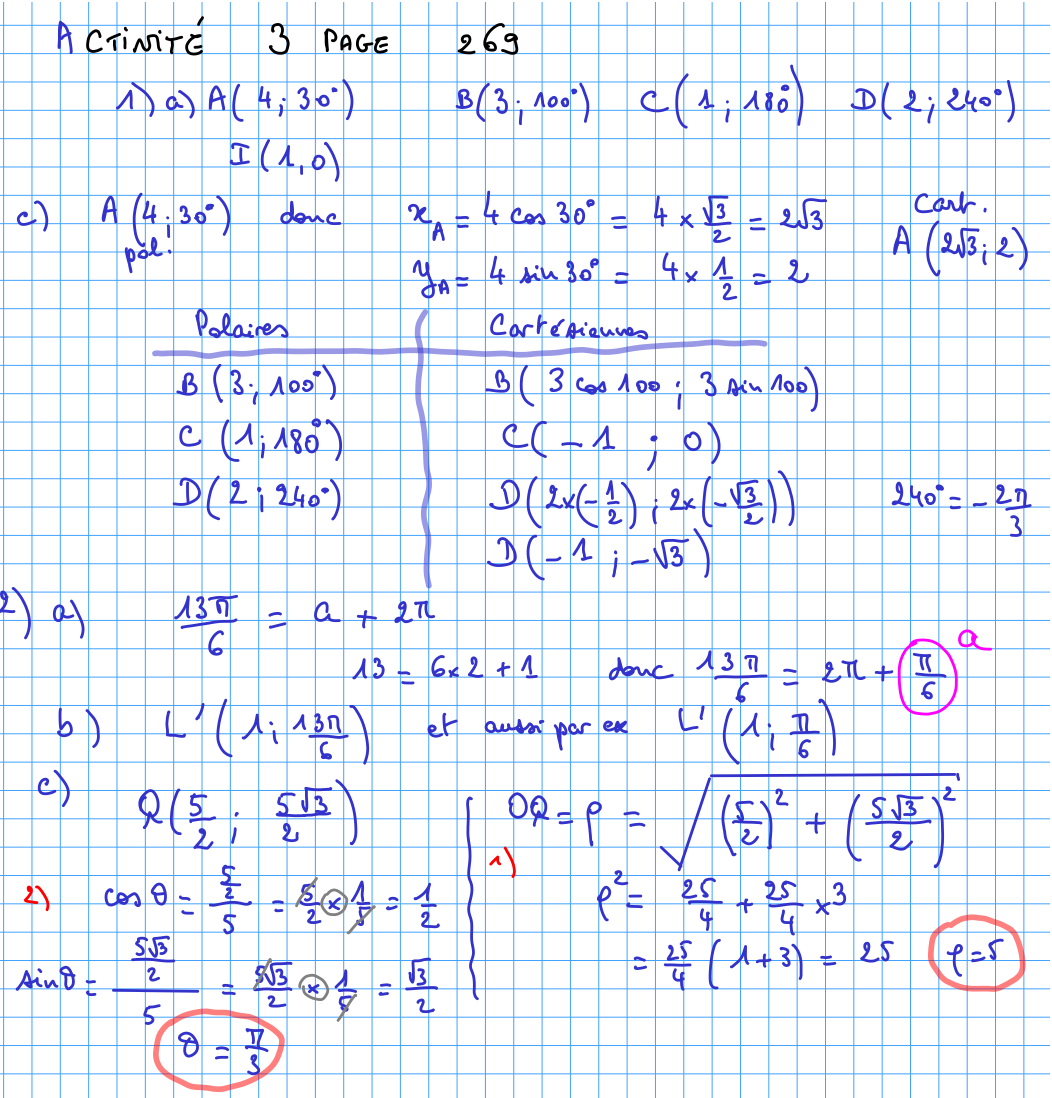 ACTIVITÉ 3 PAGE 269
1) a) A(4; 30°) B(3; 100°) C(1; 180°) D(2; 240°)
I(1,0)
c) A(4; 30°) donc x_A = 4 cos 30° = 4 × √3/2 = 2√3 Cart.
pol. y_A = 4 sin 30° = 4 × 1/2 = 2 A(2√3; 2)
Polaires Cartésiennes
B(3; 100°) B(3 cos 100 ; 3 sin 100)
C(1; 180°) C(-1 ; 0)
D(2; 240°) D(2×(-1/2) ; 2×(-√3/2)) 240° = -2π/3
D(-1 ; -√3)
2) a) 13π/6 = a + 2π
13 = 6×2 + 1 donc 13π/6 = 2π + π/6 a
b) L'(1; 13π/6) et aussi par ex L'(1; π/6)
c) Q(5/2 ; 5√3/2)
1) OQ = ρ = √((5/2)² + (5√3/2)²)
ρ² = 25/4 + 25/4 × 3
= 25/4 (1+3) = 25 ρ = 5
2) cos θ = (5/2)/5 = 5/2 × 1/5 = 1/2
sin θ = (5√3/2)/5 = 5√3/2 × 1/5 = √3/2
θ = π/3